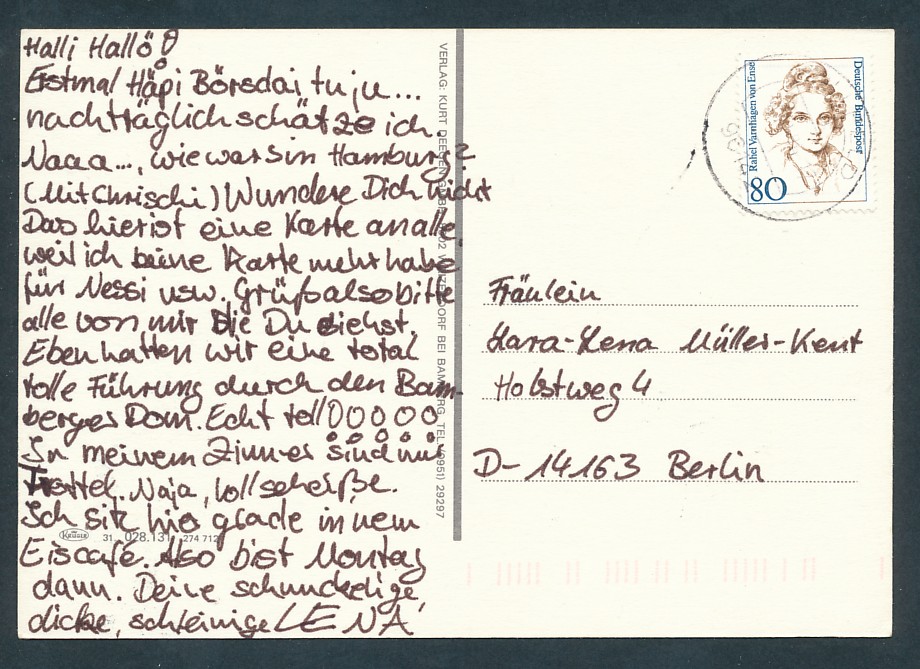 Halli Hallö!
Erstmal Häpi Börsdai tu ju...
nachträglich schätze ich.
Naaa..., wie war's in Hamburg?
(Mit Chrischi) Wundere Dich nicht
Das hier ist eine Karte an alle,
weil ich keine Karte mehr habe
für Nessi usw. Grüß also bitte
alle von mir die Du siehst.
Eben hatten wir eine total
tolle Führung durch den Bam-
berger Dom. Echt toll!OOOOO
In meinem Zimmer sind nur
Trottel. Naja, voll scheiße.
Ich sitz hier grade in nem
Eiscafé. Also bist Montag
dann. Deine schnuckelige
dicke, schleimige LENA
VERLAG: KURT
DORF BEI BAMBERG, TEL. (0951) 29297
KRÜGER 31 028.131 274 712
Deutsche Bundespost
Rahel Varnhagen von Ense
80
Fräulein
Müller-Kent
Holstweg 4
D-14163 Berlin